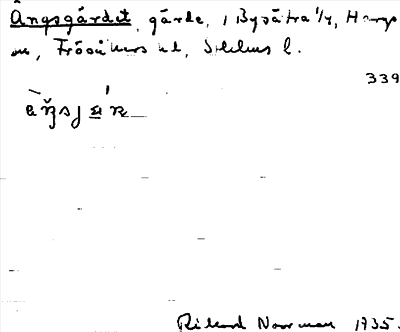 Ängsgärdet, gärde, i Bysätra 1/4, Hargs
sn, Frösåkers hd, Sthlms l.
339
Rikard Norrman 1935.